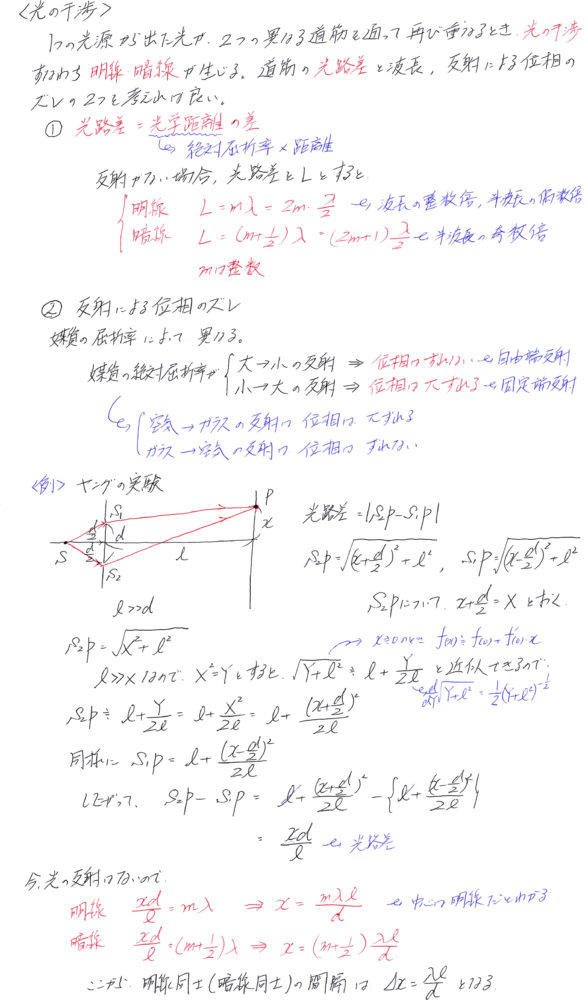 <光の干渉>
1つの光源から出た光が、2つの異なる道筋を通って再び重なるとき、光の干渉
すなわち明線・暗線が生じる。道筋の光路差と波長、反射による位相の
ズレの2つを考えれば良い。
① 光路差 = 光学距離の差
絶対屈折率 × 距離
反射がない場合、光路差をLとすると
明線 L = mλ = 2m・λ/2 ← 波長の整数倍, 半波長の偶数倍
暗線 L = (m+1/2)λ = (2m+1)λ/2 ← 半波長の奇数倍
mは整数
② 反射による位相のズレ
媒質の屈折率によって異なる。
媒質の絶対屈折率が
大→小の反射 ⇒ 位相はずれない ← 自由端反射
小→大の反射 ⇒ 位相はπずれる ← 固定端反射
空気→ガラスの反射は 位相は πずれる
ガラス→空気の反射は 位相は ずれない
<例> ヤングの実験
S S1 S2 P d/2 d/2 d l x
l≫d
光路差 = |S2P−S1P|
S2P = √((x+d/2)²+l²), S1P = √((x−d/2)²+l²)
S2Pについて、x+d/2 = X とおく
S2P = √(X²+l²)
x≒0のとき f(x)≒f(0)+f'(0)・x
l≫X なので、X²=Yとすると、√(Y+l²) ≒ l + Y/2l と近似できるので、
d/dY √(Y+l²) = 1/2(Y+l²)^(-1/2)
S2P ≒ l + Y/2l = l + X²/2l = l + (x+d/2)²/2l
同様に S1P = l + (x−d/2)²/2l
したがって、 S2P − S1P = l + (x+d/2)²/2l − {l + (x−d/2)²/2l}
= xd/l ← 光路差
今、光の反射はないので、
明線 xd/l = mλ ⇒ x = mλl/d ← 中心は明線だとわかる
暗線 xd/l = (m+1/2)λ ⇒ x = (m+1/2)λl/d
ここから、明線同士(暗線同士)の間隔は Δx = λl/d となる.